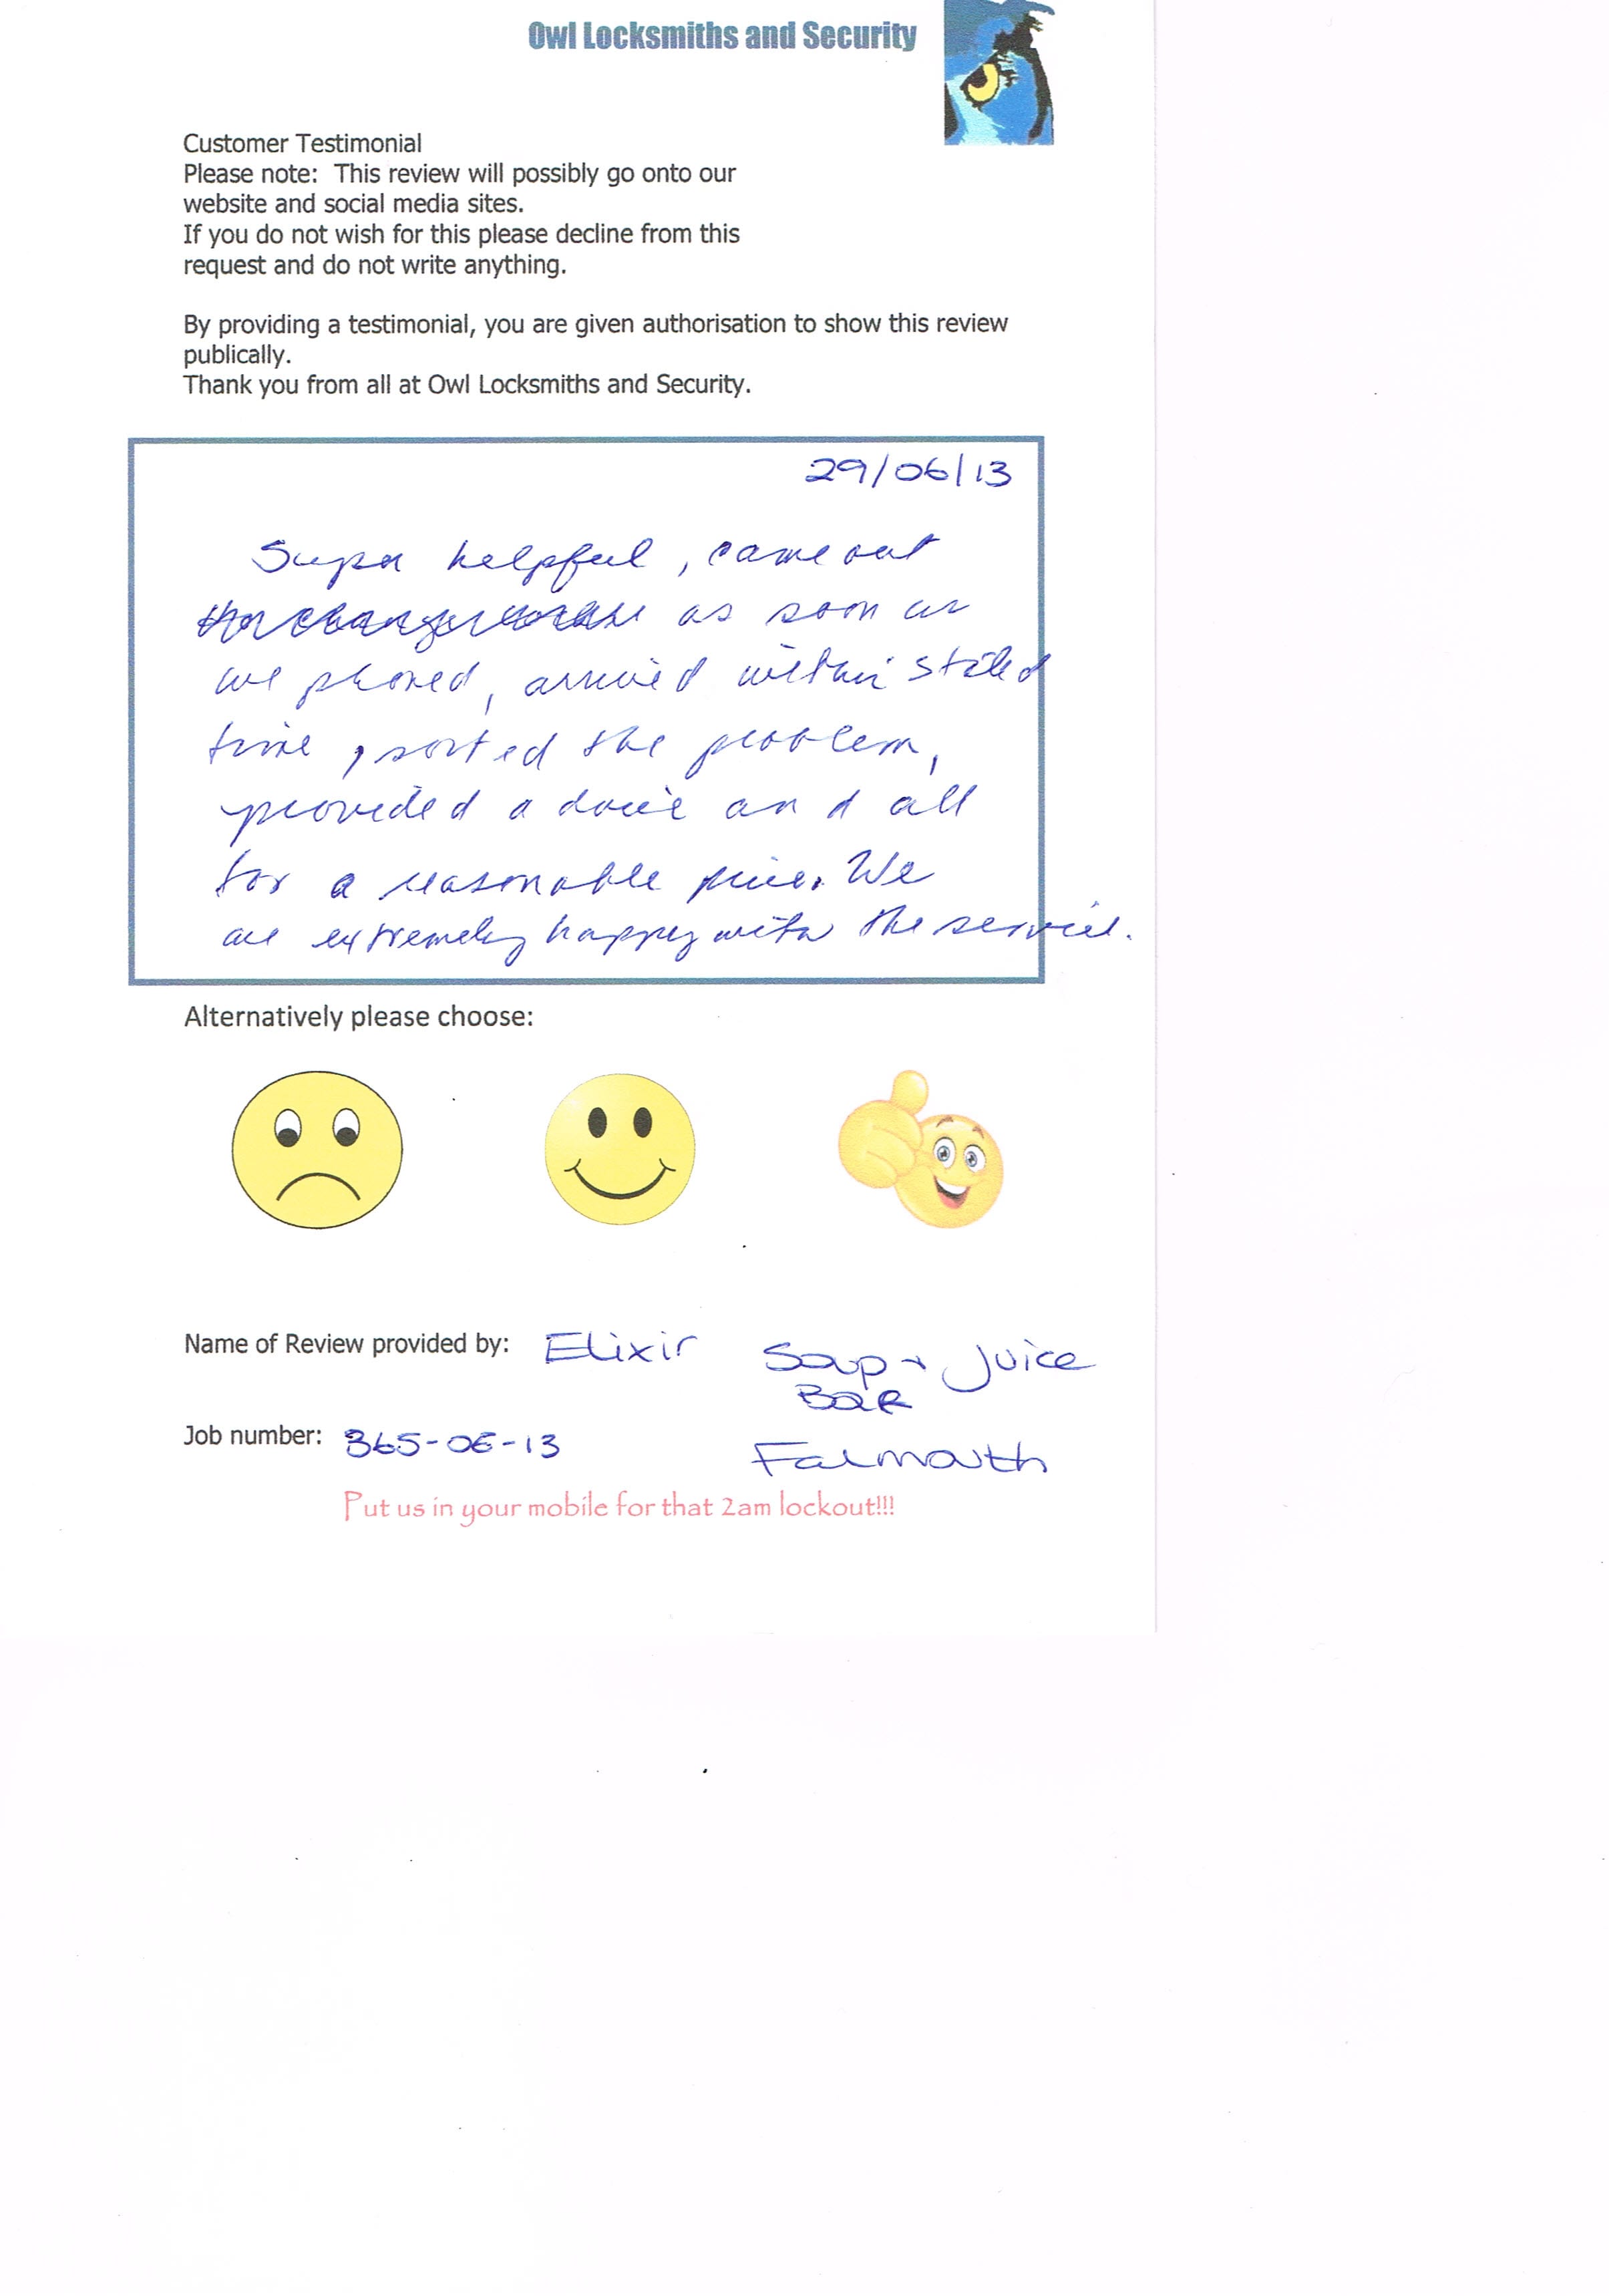 Owl Locksmiths and Security
Customer Testimonial
Please note: This review will possibly go onto our
website and social media sites.
If you do not wish for this please decline from this
request and do not write anything.
By providing a testimonial, you are given authorisation to show this review
publically.
Thank you from all at Owl Locksmiths and Security.
29/06/13
Super helpful, came out
as soon as
we phoned, arrived within stated
time, sorted the problem,
provided advice and all
for a reasonable price. We
are extremely happy with the service.
Alternatively please choose:
Name of Review provided by: Elixir Soup + Juice
Bar
Job number: 365-06-13
Falmouth
Put us in your mobile for that 2am lockout!!!